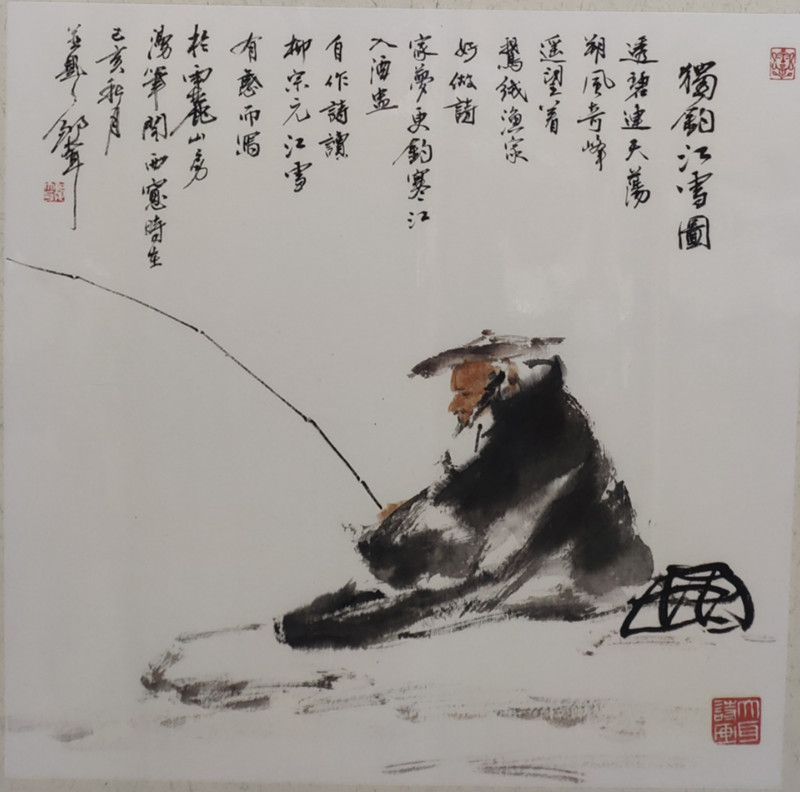 獨釣江雪圖
透碧連天蕩
朔風奇峰
遥望着
鵝絨漁家
好做詩
家夢更釣寒江
入酒盅
自作詩讀
柳宗元江雪
有感而寫
於雨龍山房
漫筆閑西窗時在
己亥秋月
並題
詩画